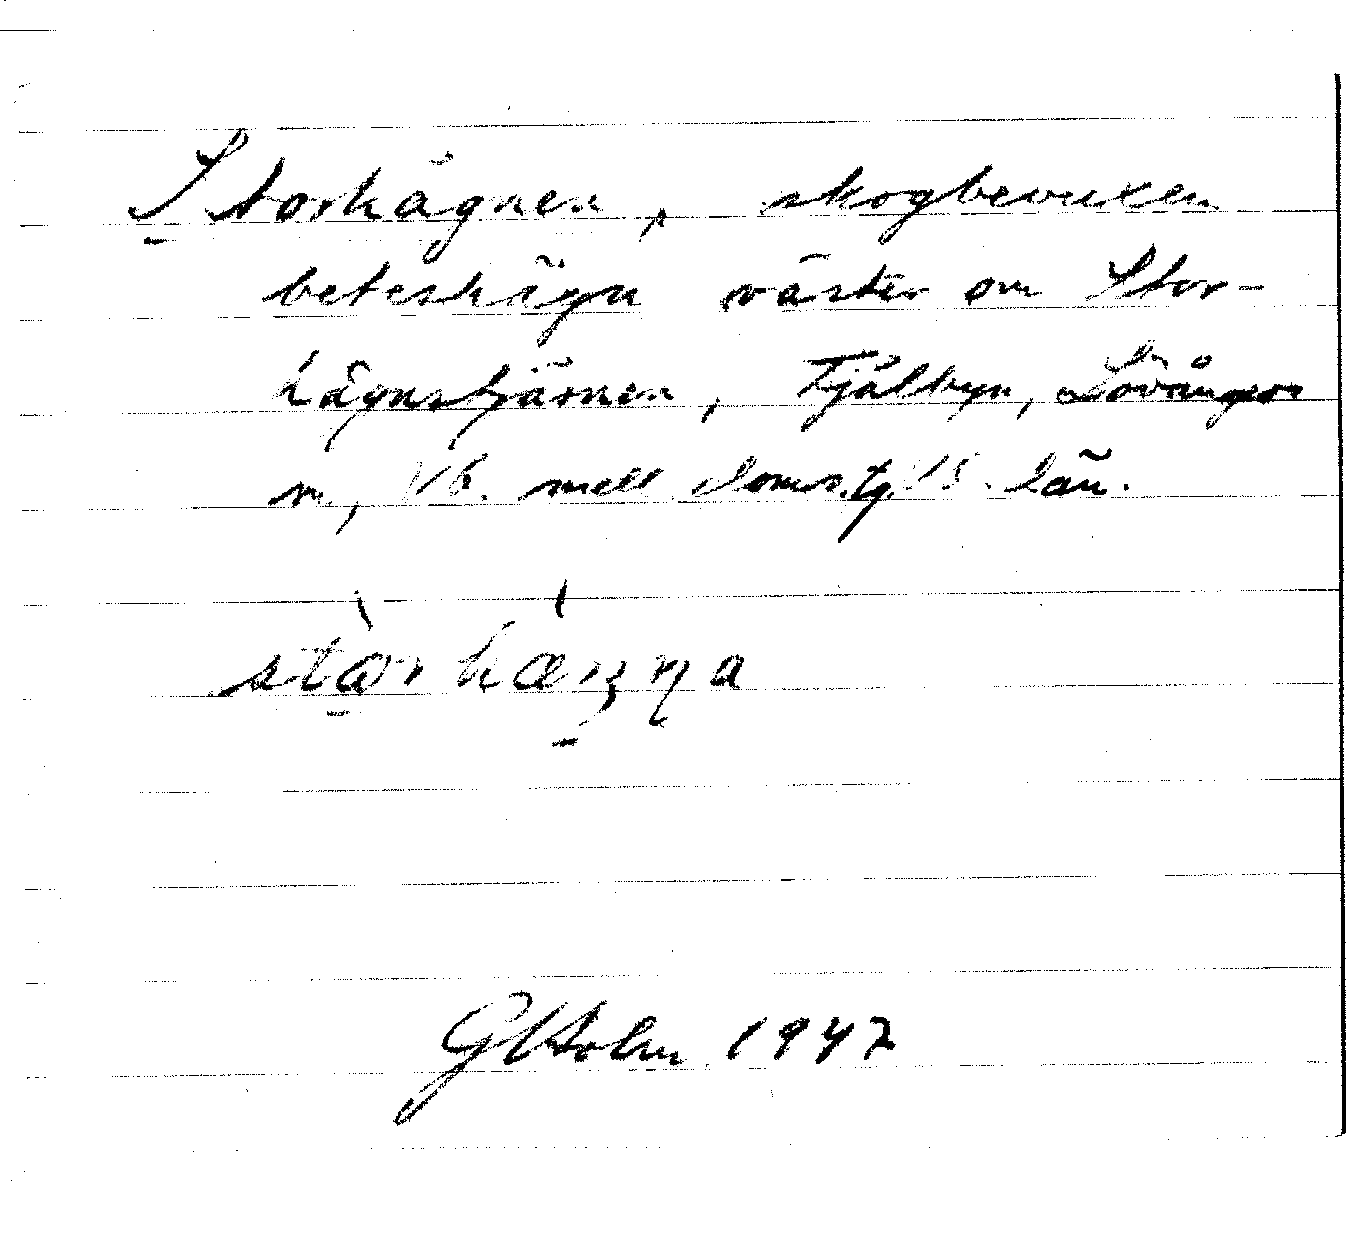 Storhägnen, skogbevuxen
beteshägn väster om Stor-
hägnstjärnen, Fjälbyn, Lövångers
sn, Vb. mell doms.tg. Vb. län.
stɷrhæŋna
G Holm 1947